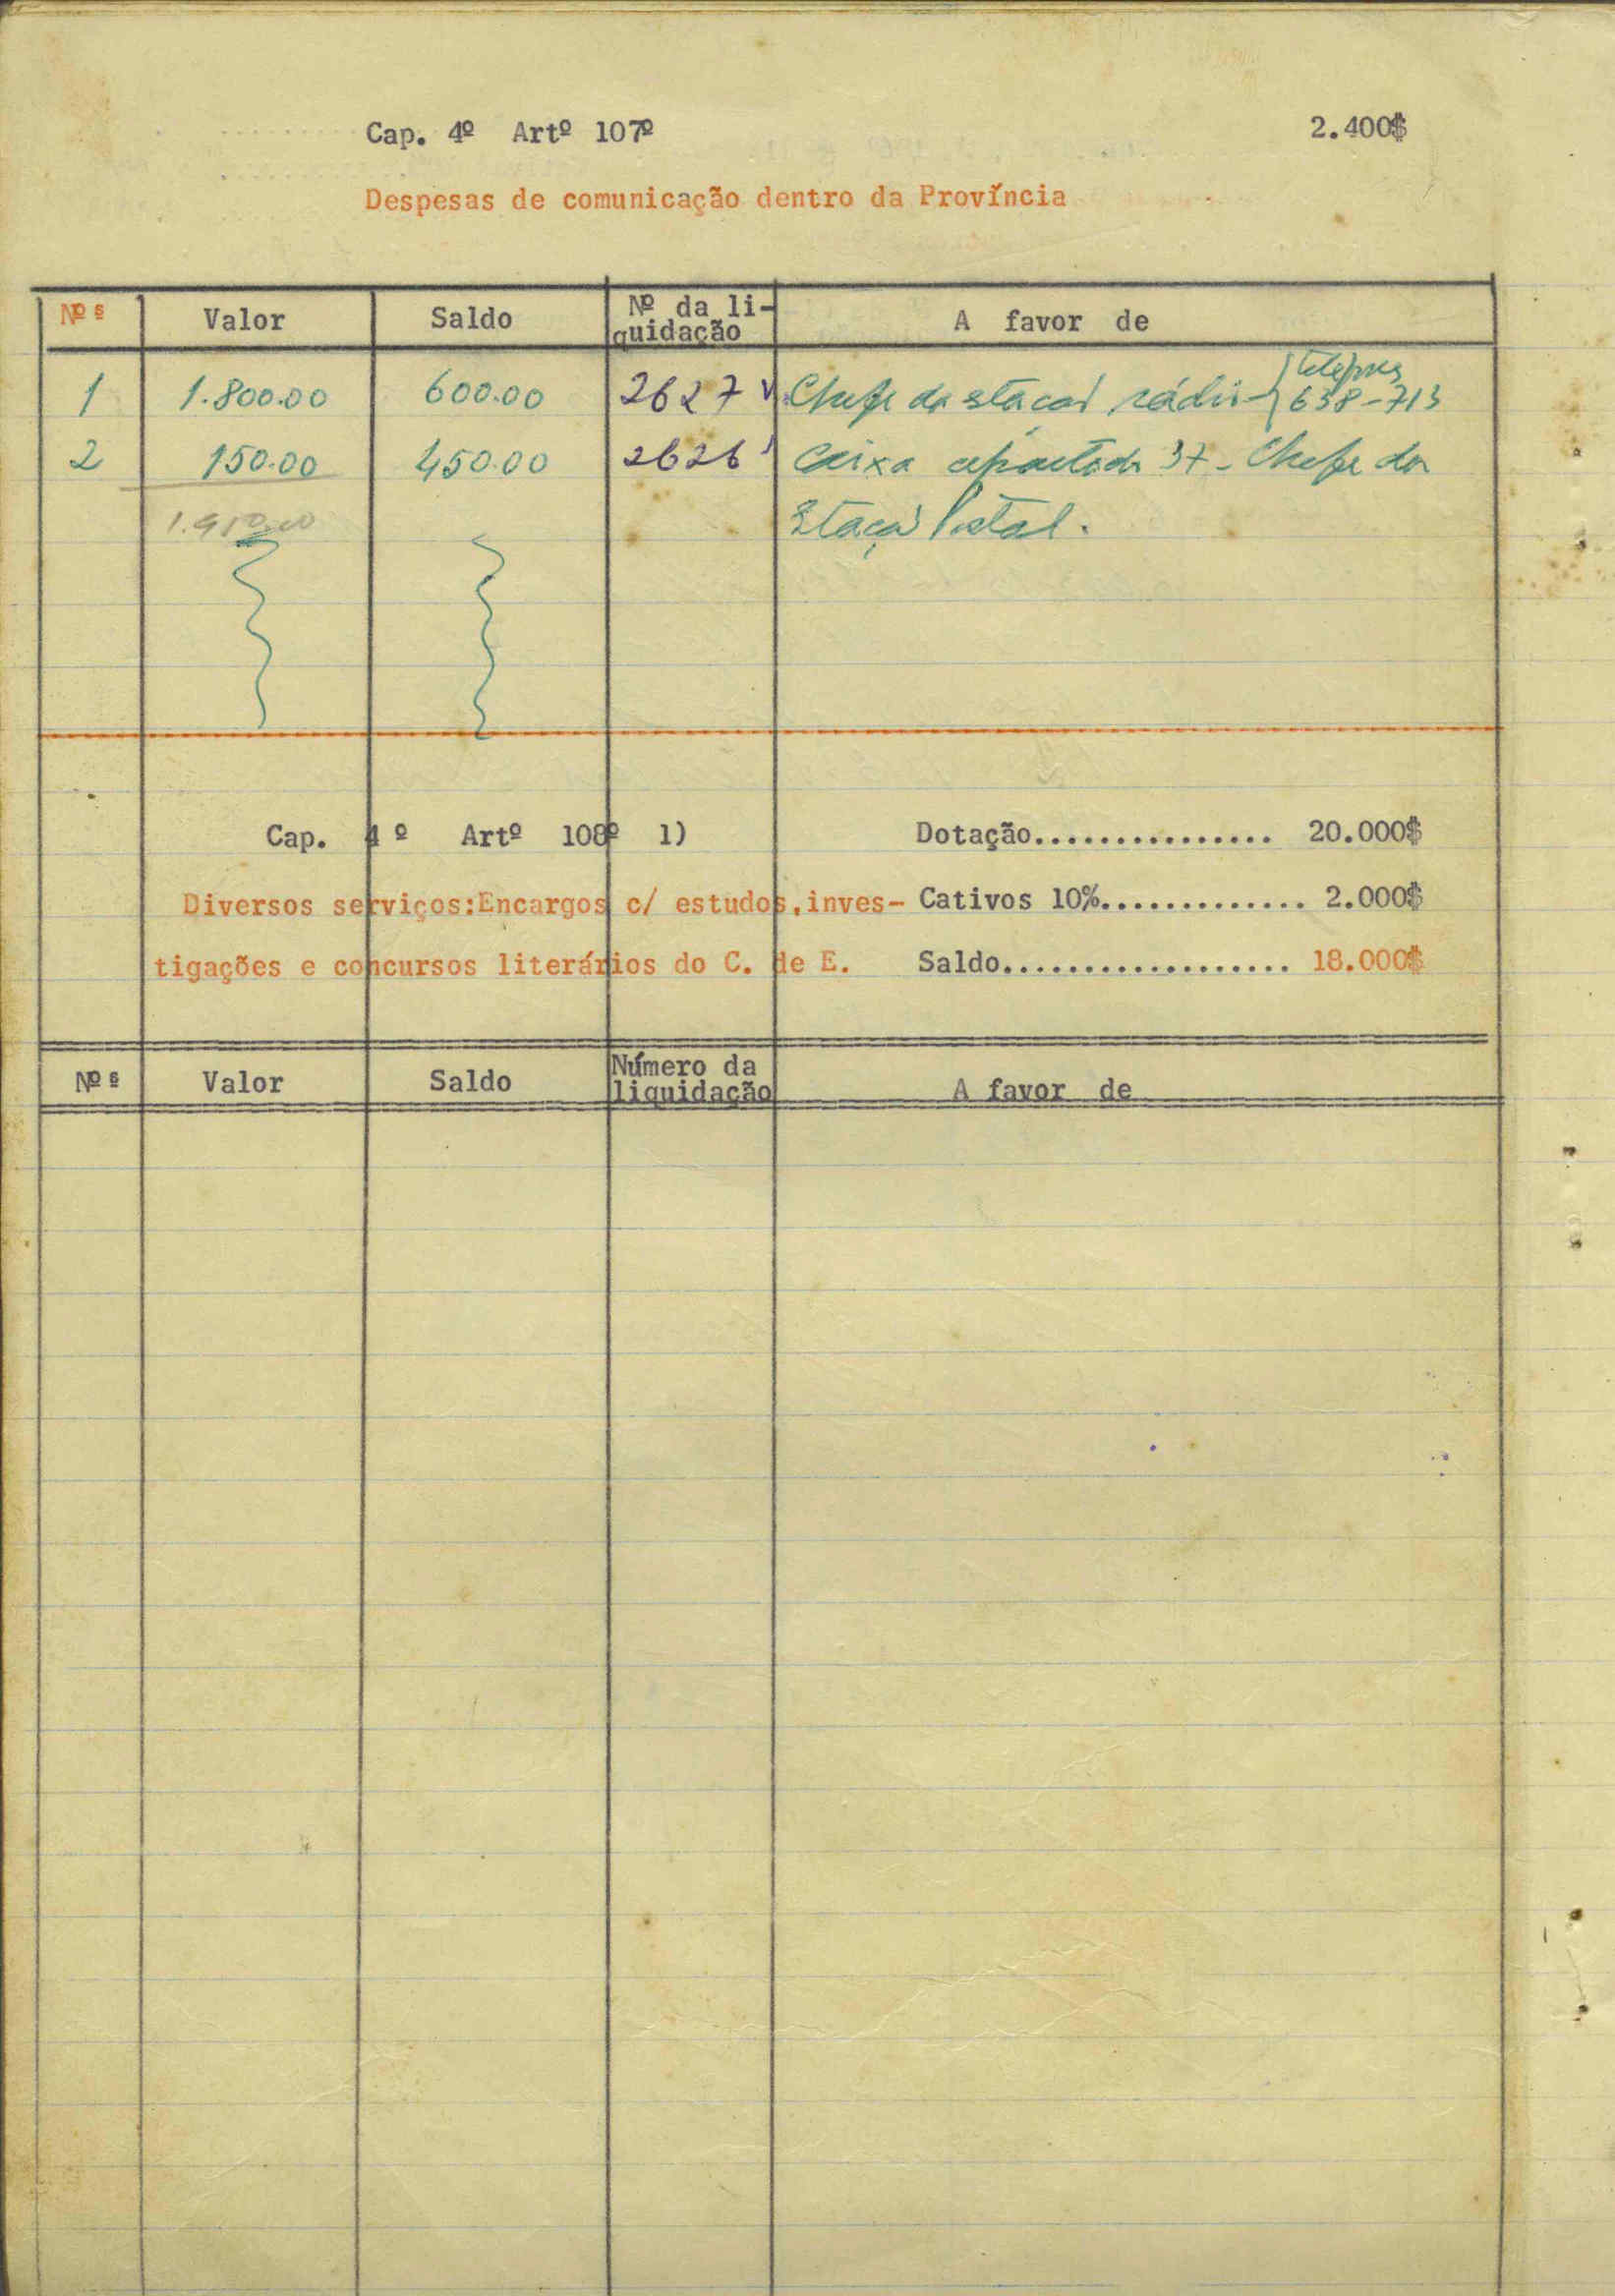 Cap. 4º Artº 107º 2.400$
Despesas de comunicação dentro da Província
Nºs Valor Saldo Nº da li-
quidação A favor de
1 1.800.00 600.00 2627 Chefe da stacaõ rádio telefones
638-713
2 150.00 450.00 2626 Caixa apartado 37 - Chefe da
1.950.00 Estaçaõ Postal.
Cap. 4º Artº 108º 1) Dotação............... 20.000$
Diversos serviços:Encargos c/ estudos,inves- Cativos 10%............. 2.000$
tigações e concursos literários do C. de E. Saldo.................. 18.000$
Nºs Valor Saldo Número da
liquidação A favor de